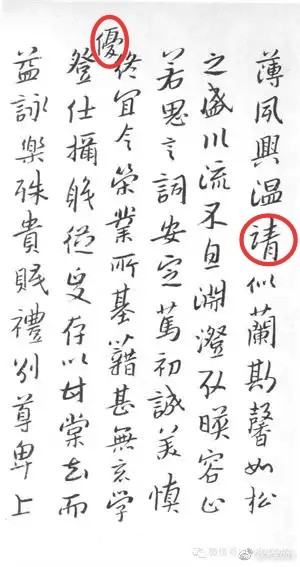 薄夙興温請似蘭斯馨如松
之盛川流不息淵澄取暎容止
若思言詞安定篤初誠美慎
終宜令榮業所基藉甚無竟学
優
登仕攝職從政存以甘棠去而
益詠樂殊貴賤禮别尊卑上